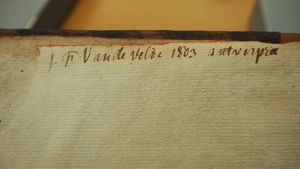 J. F. Van de Velde 1803 antverpiæ